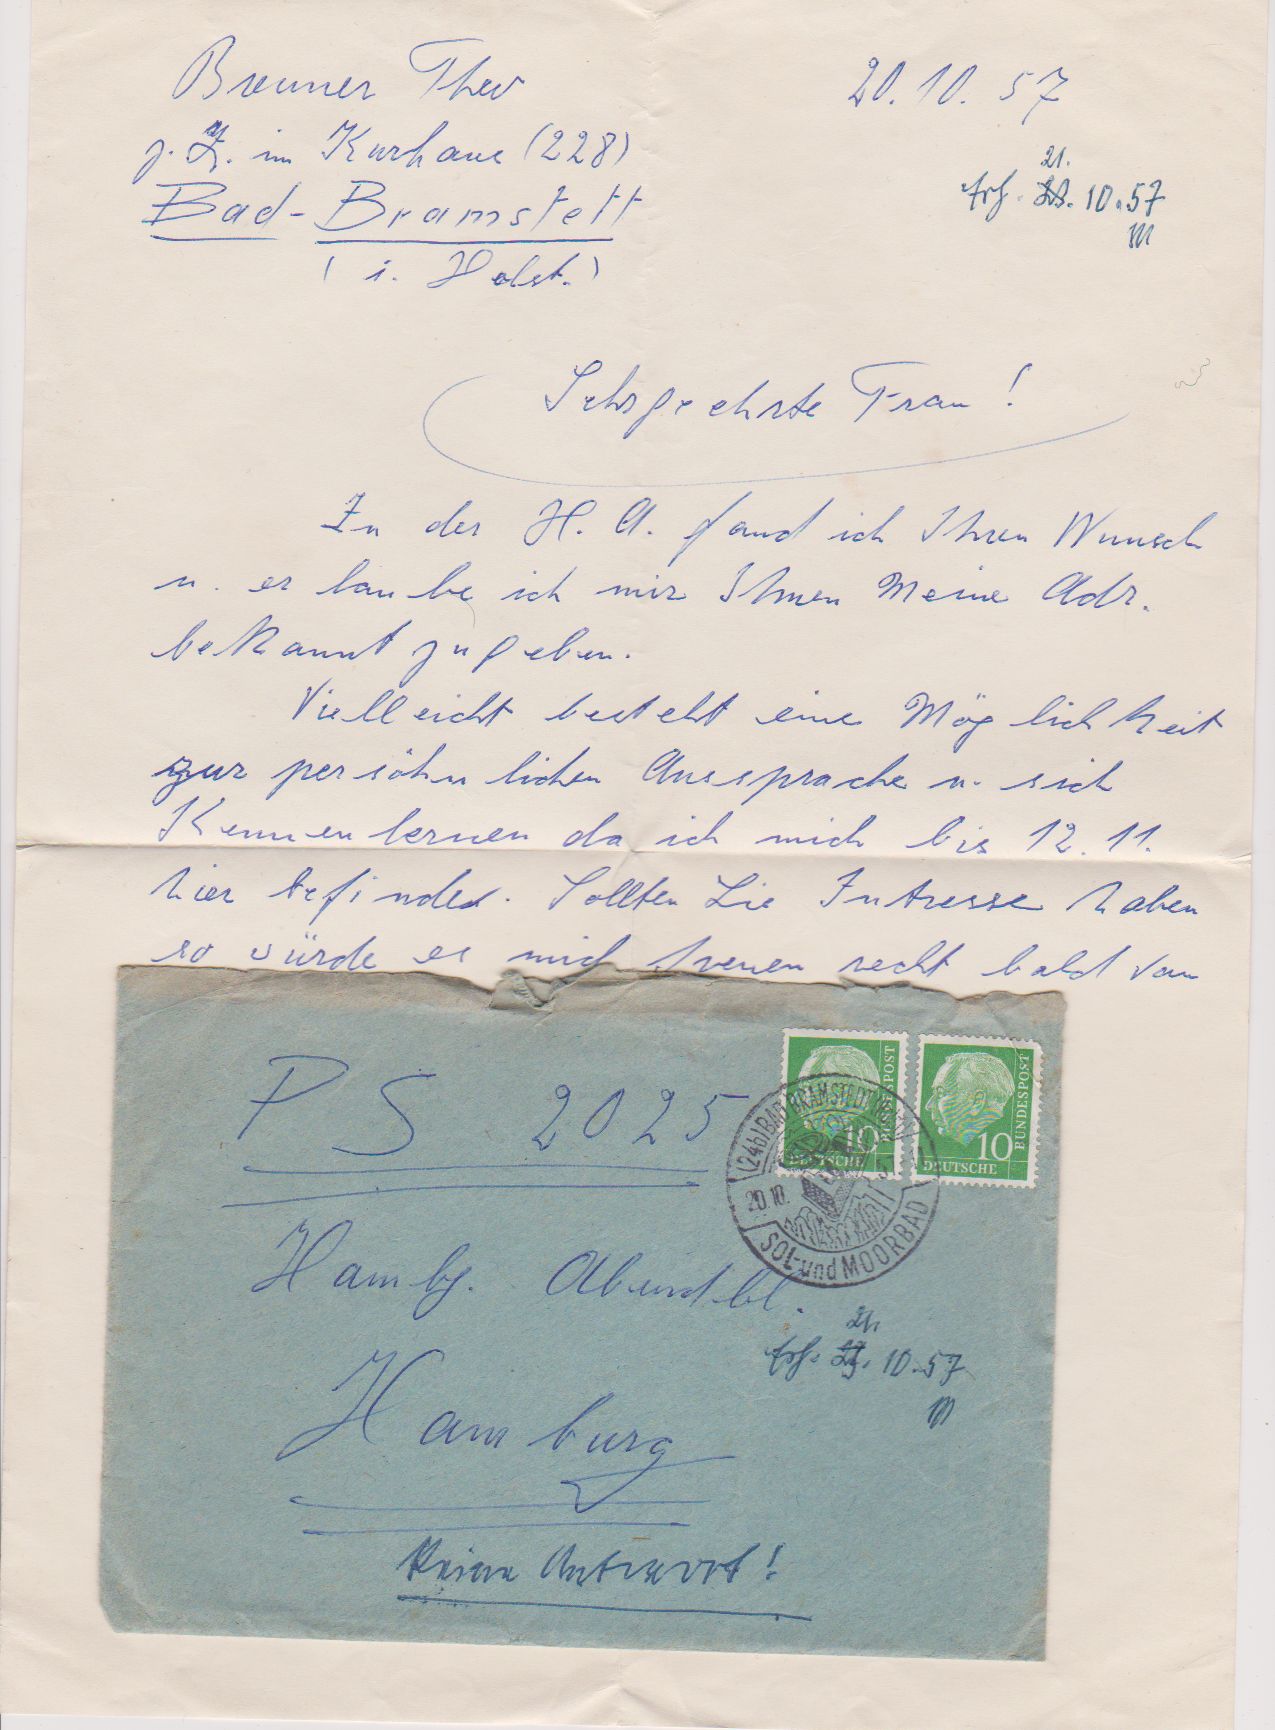 Brenner Theo
z. Z. im Kurhaus (228)
Bad-Bramstett
(i. Holst.)
20.10.57
21.
10.57
Sehrgeehrte Frau!
In der H. A. fand ich Ihren Wunsch
u. erlaube ich mir Ihnen Meine Adr.
bekannt zugeben.
Vielleicht besteht eine Möglichkeit
zur persöhnlichen Aussprache u. sich
Kennenlernen da ich mich bis 12.11.
hier befinde. Sollten Sie Intresse haben
so würde es mich freuen recht bald von
PS 2025
Hambg. Abendbl.
Hamburg
DEUTSCHE BUNDESPOST 10
DEUTSCHE BUNDESPOST 10
(24b) BAD BRAMSTEDT
20.10.
SOL- und MOORBAD
21.
10.57
Keine Antwort!